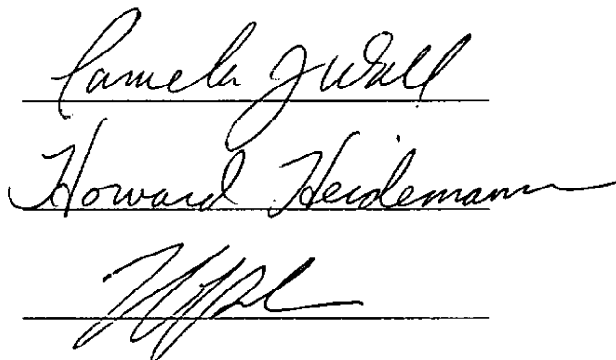 Pamela J Wall
Howard Heidemann